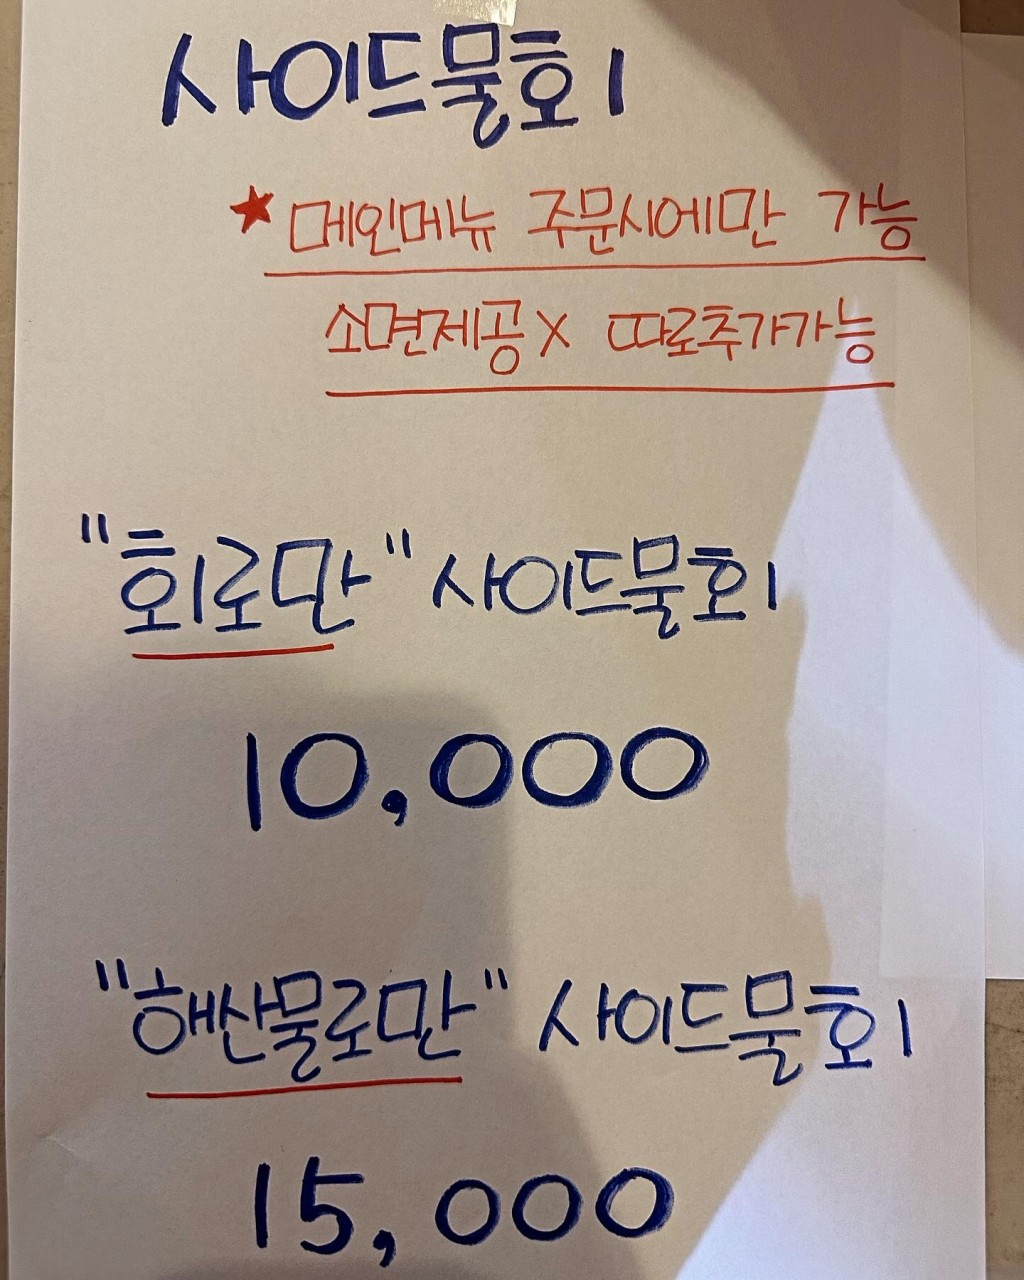 사이드물회
★메인메뉴 주문시에만 가능
소면제공X 따로추가가능
"회로만" 사이드물회
10,000
"해산물로만" 사이드물회
15,000